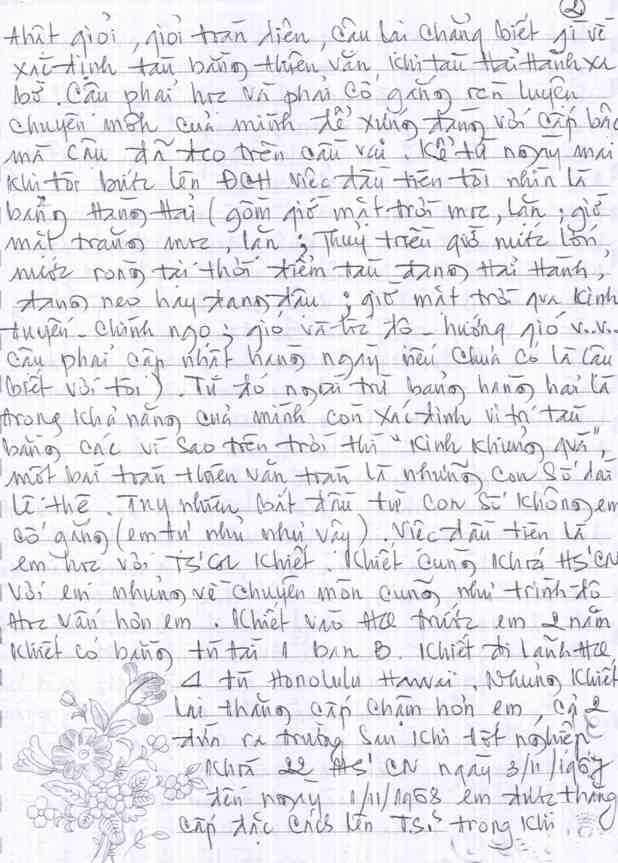 ②
thật giỏi, giỏi toàn diện, cậu lại chẳng biết gì về
xác định tàu bằng thiên văn, khi tàu Hải Hành xa
bờ. Cậu phải học và phải cố gắng rèn luyện
chuyên môn của mình để xứng đáng với cấp bậc
mà cậu đã đeo trên cầu vai. Kể từ ngày mai
khi tôi bước lên ĐCH việc đầu tiên tôi nhìn là
bảng Hàng Hải (gồm giờ mặt trời mọc, lặn; giờ
mặt trăng mọc, lặn; Thuỷ triều giờ nước lớn
nước ròng tại thời điểm tàu đang Hải Hành,
đang neo hay đang đậu; giờ mặt trời qua kinh
tuyến - chính ngọ; gió và tốc độ - hướng gió v.v..
Cậu phải cập nhật hàng ngày nếu chưa có là cậu
biết với tôi). Từ đó ngoài trừ bảng hàng hải là
trong khả năng của mình còn xác định vị trí tàu
bằng các vì sao trên trời thì "Kinh khủng quá",
một bài toán thiên văn toàn là những con số dài
lê thê. Tuy nhiên bắt đầu từ con số không em
cố gắng (em tự nhủ như vậy). Việc đầu tiên là
em học với TS'CN Khiết. Khiết cùng khoá HS'CN
với em nhưng về chuyên môn cũng như trình độ
học vấn hơn em. Khiết vào HQ trước em 2 năm
Khiết có bằng tú tài 1 ban B. Khiết đi lãnh HQ
4 từ Honolulu Hawai. Nhưng Khiết
lại thăng cấp chậm hơn em, cả 2
đều ra trường sau khi tốt nghiệp
khoá 22 HS'CN ngày 3/11/1967
đến ngày 1/11/1968 em được thăng
cấp đặc cách lên TS' trong khi